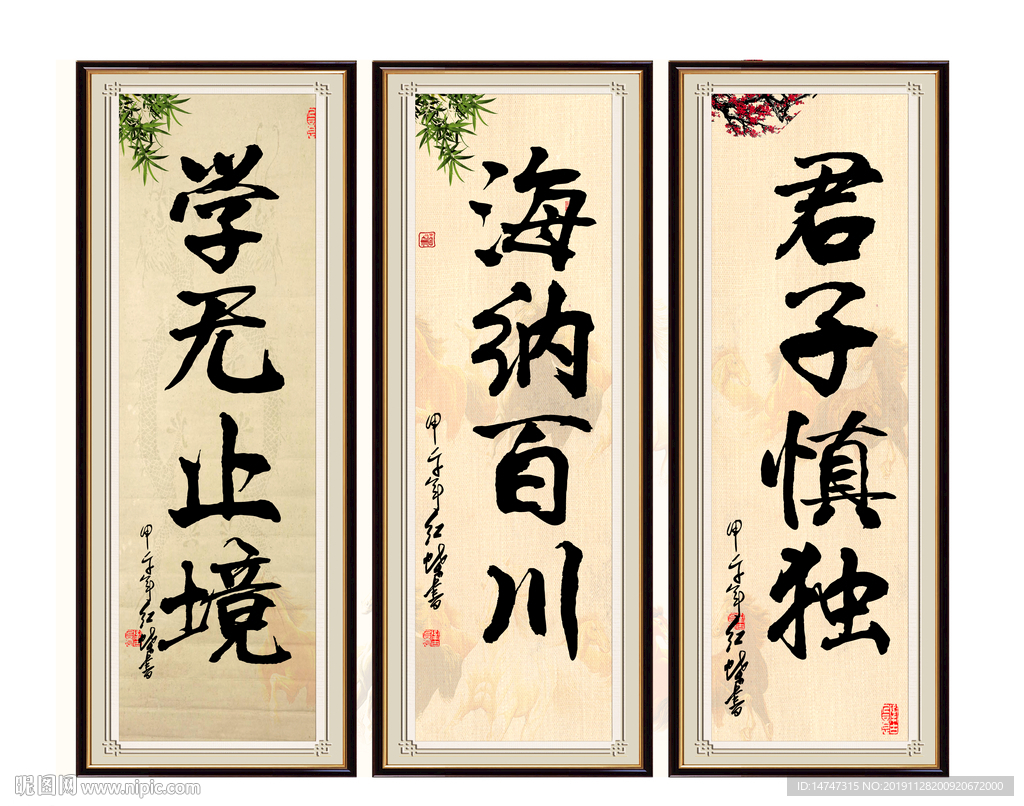 学无止境
甲午年红蝶书
海纳百川
甲午年红蝶书
君子慎独
甲午年红蝶书
昵图网 www.nipic.com
ID:14747315 NO:20191128200920672000